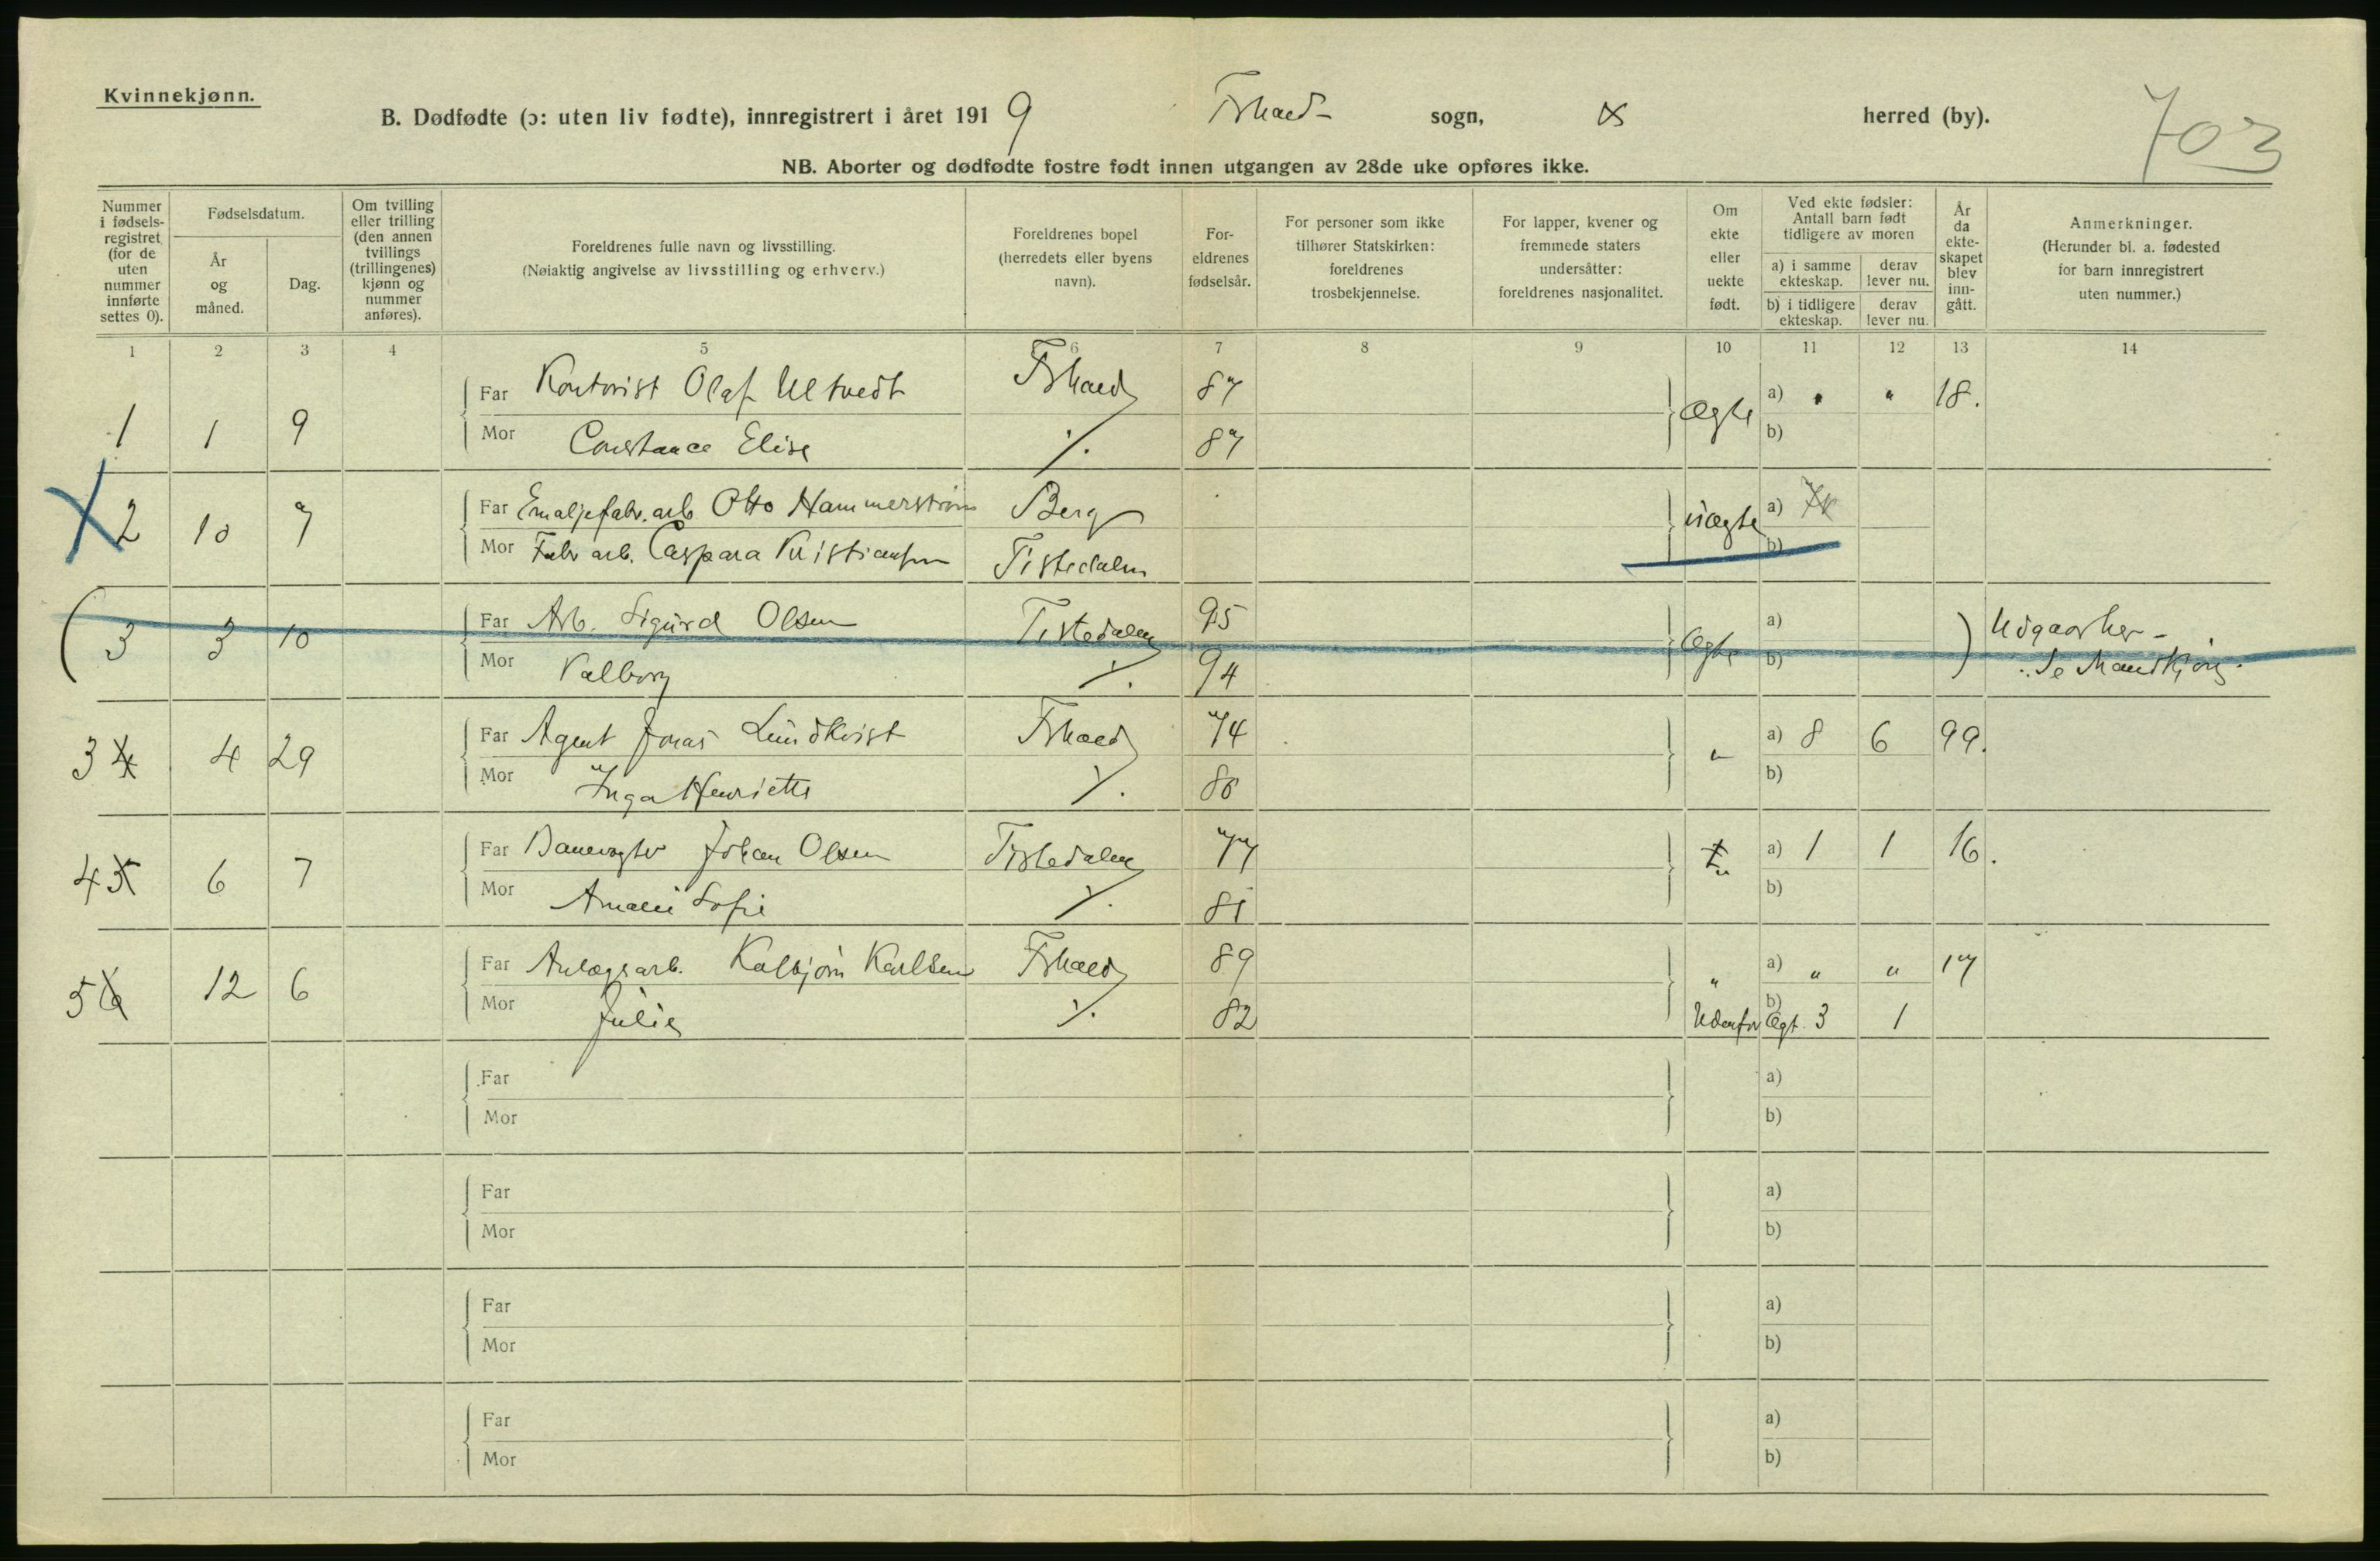 Kvinnekjønn.
B. Dødfødte (ɔ: uten liv fødte), innregistrert i året 1919 Frhald- sogn, herred (by).
703
NB. Aborter og dødfødte fostre født innen utgangen av 28de uke opføres ikke.
Nummer i fødsels-registret (for de uten nummer innførte settes 0).
Fødselsdatum.
År og måned.
Dag.
Om tvilling eller trilling (den annen tvillings (trillingenes) kjønn og nummer anføres).
Foreldrenes fulle navn og livsstilling.
(Nøiaktig angivelse av livsstilling og erhverv.)
Foreldrenes bopel (herredets eller byens navn).
For-eldrenes fødselsår.
For personer som ikke tilhører Statskirken: foreldrenes trosbekjennelse.
For lapper, kvener og fremmede staters undersåtter: foreldrenes nasjonalitet.
Om ekte eller uekte født.
Ved ekte fødsler: Antall barn født tidligere av moren
a) i samme ekteskap. derav lever nu.
b) i tidligere ekteskap. derav lever nu.
År da ekte-skapet blev inn-gått.
Anmerkninger.
(Herunder bl. a. fødested for barn innregistrert uten nummer.)
1 2 3 4 5 6 7 8 9 10 11 12 13 14
1 1 9 Far Kontorist Olaf Ultvedt Frhald 87 Ægte a) " " 18.
Mor Constance Elise ٪ 87 b)
X 2 10 7 Far Emaljefabr. arb Otto Hammerstrøm Berg uægte a)
Mor Fabr arb. Caspara Kristiansen Tistedalen b)
( 3 3 10 Far Arb. Sigurd Olsen Tistedalen 95 Ægte a) ) Udgaar her -
Mor Valborg ٪ 94 b) Se Mandkjøn.
3 4 4 29 Far Agent Jonas Lundkvist Frhald 74 " a) 8 6 99.
Mor Inga Henriette ٪ 80 b)
4 5 6 7 Far Banevogter Johan Olsen Tistedalen 77 " a) 1 1 16.
Mor Amalie Sofie ٪ 81 b)
5 6 12 6 Far Anlægsarb. Kolbjørn Karlsen Frhald 89 " a) " " 17
Mor Julie ٪ 82 Udenfor b) Ægt. 3 1
Far a)
Mor b)
Far a)
Mor b)
Far a)
Mor b)
Far a)
Mor b)